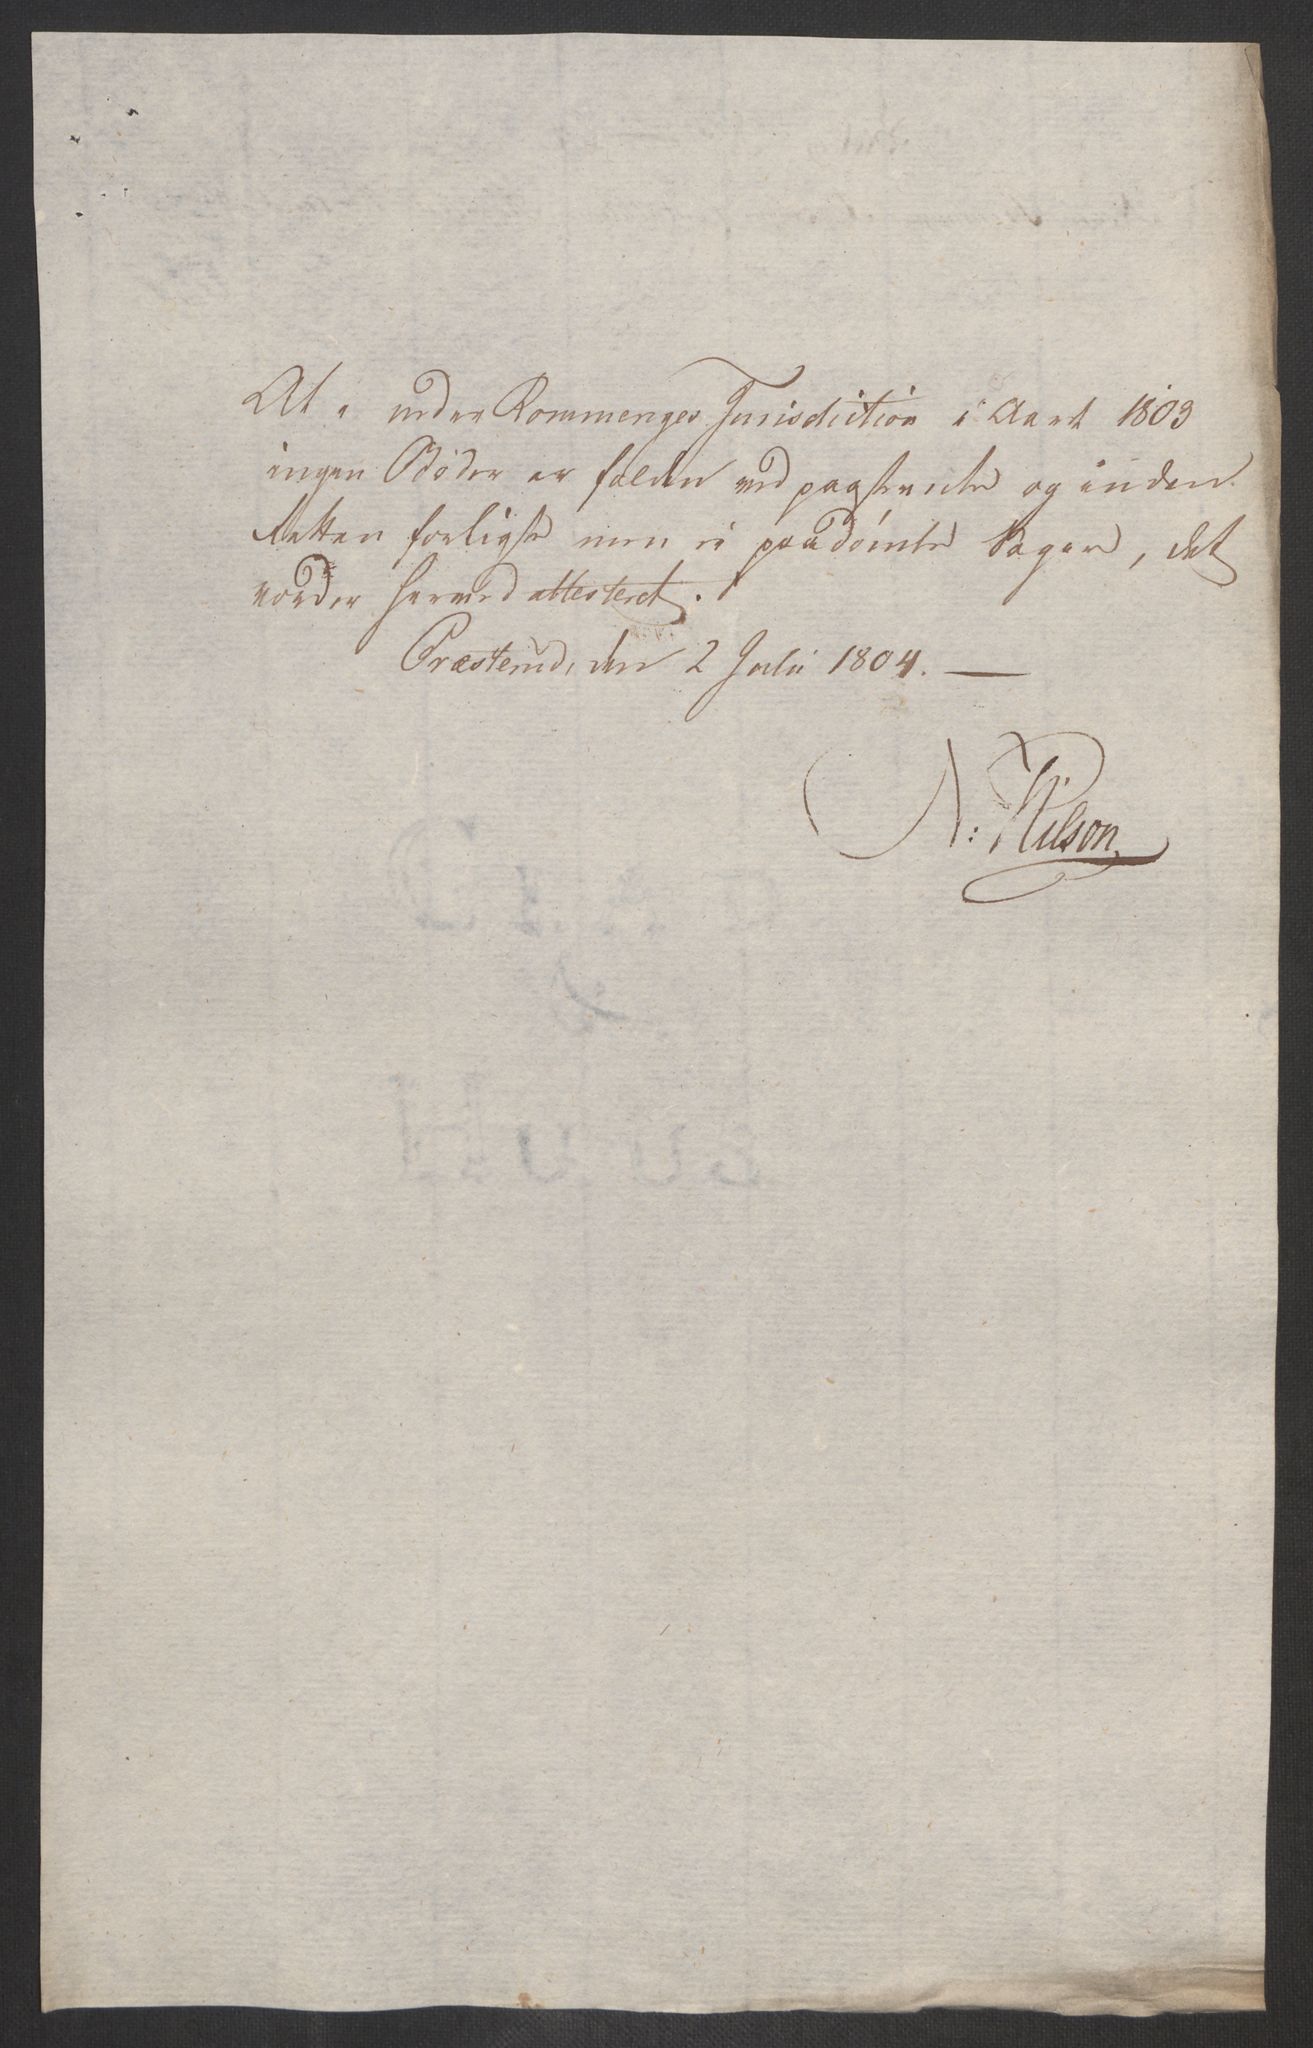 At under Rommenges Jurisdiction i Aaret 1803
ingen Bøder er falden ved paastevnte og inden
Retten forligte men ei paadømte Sager, det
vorder herved attesteret.
Præsterud, den 2 Julii 1804. —
N: Wilson